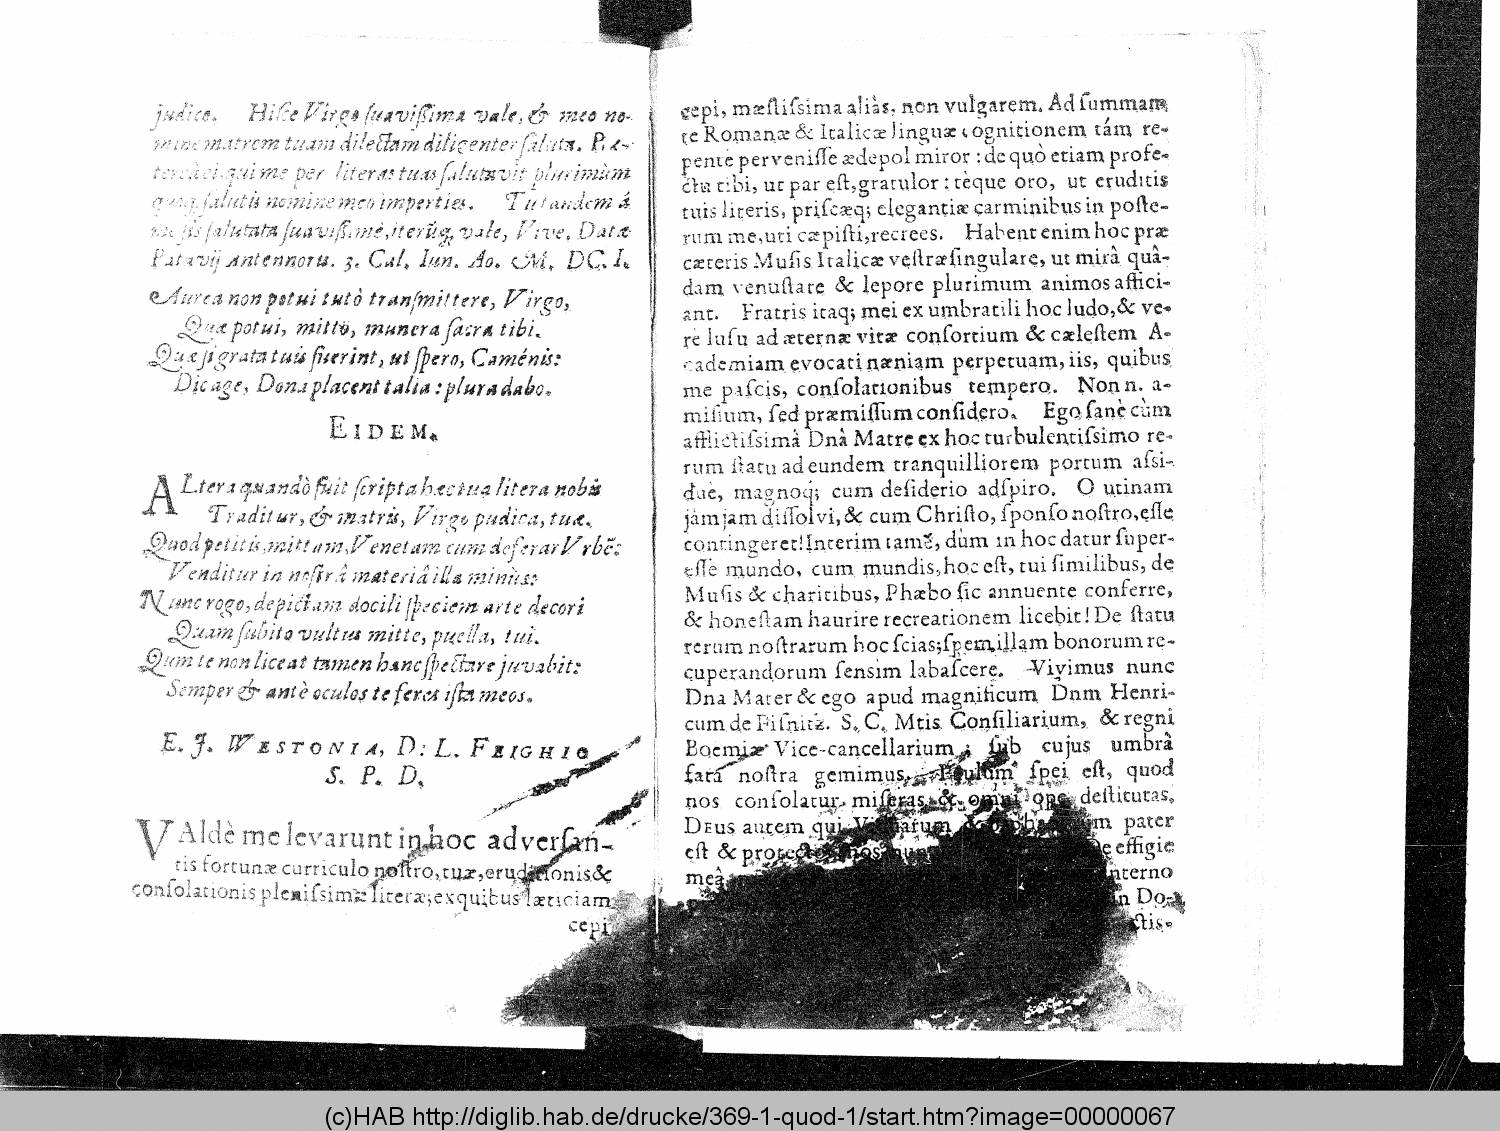 judice. Hisce Virgo suavissima vale, & meo no-
mine matrem tuam dilectam diligenter saluta. P. æ-
qui me per literas tuas salutavit plurimùm
salutis nomine meo imperties. Tu tandem á
salutata suavissimè, iterũq; vale, Vive. Datæ
Patavij Antennoris. 3. Cal. Iun. Ao. M. DC. I.
Aurea non potui tutò transmittere, Virgo,
Quæ potui, mitto, munera sacra tibi.
Quæ si grata tuis fuerint, ut spero, Caménis:
Dic age, Dona placent talia: plura dabo.
EIDEM.
ALtera quandò fuit scripta hæc tua litera nobis
Traditur, & matris, Virgo pudica, tuæ.
Quod petitis, mittam, Venetam cum deferar Vrbẽ:
Venditur in nostrâ materiâ illa minùs:
Nunc rogo, depictam docili speciem arte decori
Quam subito vultus mitte, puella, tui.
Qum te non liceat tamen hanc spectare juvabit:
Semper & antè oculos te feret ista meos.
E. J. WESTONIA, D: L. FEIGHIO
S. P. D.
VAldè me levarunt in hoc adversan-
tis fortunæ curriculo nostro, tuæ, eruditionis &
consolationis plenissimæ literæ; ex quibus lætitiam
cepi
cepi, mæstissima aliàs, non vulgarem. Ad summam
te Romanæ & Italicæ linguæ cognitionem tám re-
pente pervenisse ædepol miror: de quò etiam profe-
ctu tibi, ut par est, gratulor: tèque oro, ut eruditis
tuis literis, priscæq; elegantiæ carminibus in poste-
rum me, uti cæpisti, recrees. Habent enim hoc præ
cæteris Musis Italicæ vestræ singulare, ut mirâ quâ-
dam venustate & lepore plurimum animos affici-
ant. Fratris itaq; mei ex umbratili hoc ludo, & ve-
rè lusu ad æternæ vitæ consortium & cælestem A-
cademiam evocati næniam perpetuam, iis, quibus
me pascis, consolationibus tempero. Non n. a-
misium, sed præmissum confidero. Ego sanè cùm
afflictissimâ Dnâ Matre ex hoc turbulentissimo re-
rum statu ad eundem tranquilliorem portum assi-
duè, magnoq; cum desiderio adspiro. O utinam
jam jam dissolvi, & cum Christo, sponso nostro, esse
contingeret! Interim tamẽ, dùm in hoc datur super-
esse mundo, cum mundis, hoc est, tui similibus, de
Musis & charitibus, Phæbo sic annuente conferre,
& honestam haurire recreationem licebit! De statu
rerum nostrarum hoc scias; spem illam bonorum re-
cuperandorum sensim labascere. Vivimus nunc
Dna Mater & ego apud magnificum Dnm Henri-
cum de Pisnitz. S. C. Mtis Consiliarium, & regni
Boemiæ Vice-cancellarium; sub cujus umbrâ
fata nostra gemimus. Paulum spei est, quod
nos consolatur, miseras, & omni ope destitutas.
DEus autem qui Viduarum pater
est & protector, nos effigie
meâ interno
in Do-
ctis-
(c)HAB http://diglib.hab.de/drucke/369-1-quod-1/start.htm?image=00000067